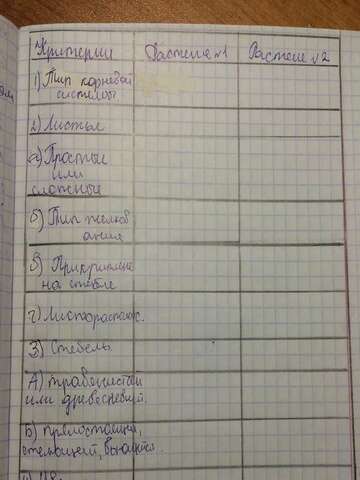 Критерии Растение №1 Растение №2
1) Тип корневой
системы
2) Листья
а) Простые
или
сложные
б) Тип жилков
ания
в) Прикрипление
на стебле
г) Листорасполож.
3) Стебель
А) травенистый
или древесневый.
Б) прямостоящий,
стелющей, вьющийся.